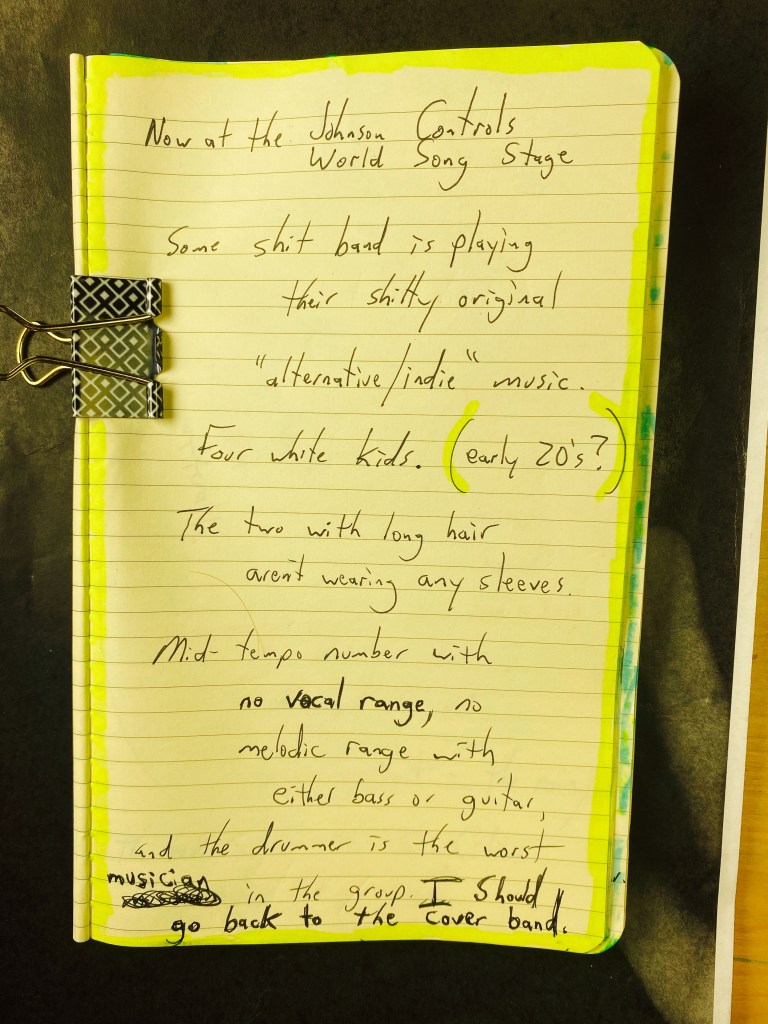 Now at the Johnson Controls
World Song Stage
Some shit band is playing
their shitty original
"alternative/indie" music.
Four white kids. (early 20's?)
The two with long hair
aren't wearing any sleeves.
Mid-tempo number with
no vocal range, no
melodic range with
either bass or guitar,
and the drummer is the worst
musician in the group. I should
go back to the cover band.